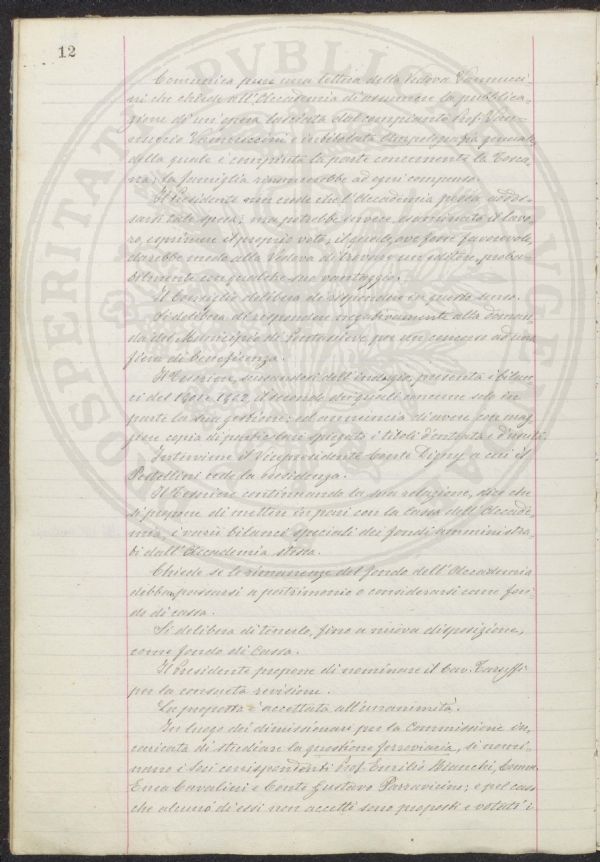 12
Comunica pure una lettera della Vedova Vannucci-
ni che chiede all'Accademia di assumere la pubblica-
zione di un'opera lasciata dal compianto Prof. Vin-
Vannuccini e intitolata generale,
della quale è compiuta la parte concernente la Tosca-
na; la famiglia rinuncerebbe ad ogni compenso.
Il Presidente non crede che l'Accademia possa addos-
sarsi tale spesa; ma potrebbe invece, esaminato il lavo-
ro, esprimere il proprio voto, il quale, ove fosse favorevole,
darebbe modo alla Vedova di trovare un editore, proba-
bilmente con qualche suo vantaggio.
Il Consiglio delibera di rispondere in questo senso.
Si delibera di rispondere negativamente alla doman-
da del Municipio di Pontassieve per un concorso ad una
fiera di beneficenza.
Il Tesoriere, scusandosi dell'indugio, presenta i bilan-
ci del e 1892, il secondo dei quali concerne solo in
parte la sua gestione; ed annuncia di avere con mag-
giore copia di particolari spiegato i titoli d'entrata e d'uscita.
Interviene il Vicepresidente Conte Digny a cui il
Pestellini cede la presidenza.
Il Tesoriere continuando la sua relazione, dice che
si propone di mettere in pari con la Cassa dell'Accade-
mia, i varii bilanci speciali dei fondi amministra-
ti dall'Accademia stessa.
Chiede se le rimanenze del fondo dell'Accademia
debban passarsi a patrimonio o considerarsi come fon-
do di cassa.
Si delibera di tenerlo, fino a nuova disposizione,
come fondo di Cassa.
Il Presidente propone di nominare il Cav. Taruffi
per la consueta revisione.
La proposta è accettata all'unanimità.
In luogo dei dimissionari per la Commissione in-
caricata di studiare la questione ferroviaria, si nomi-
nano i Soci corrispondenti Prof. Emilio Bianchi, Comm.
Enea Cavalieri e Conte Gustavo Parravicino; e pel caso
che alcuno di essi non accetti sono proposti e votati i